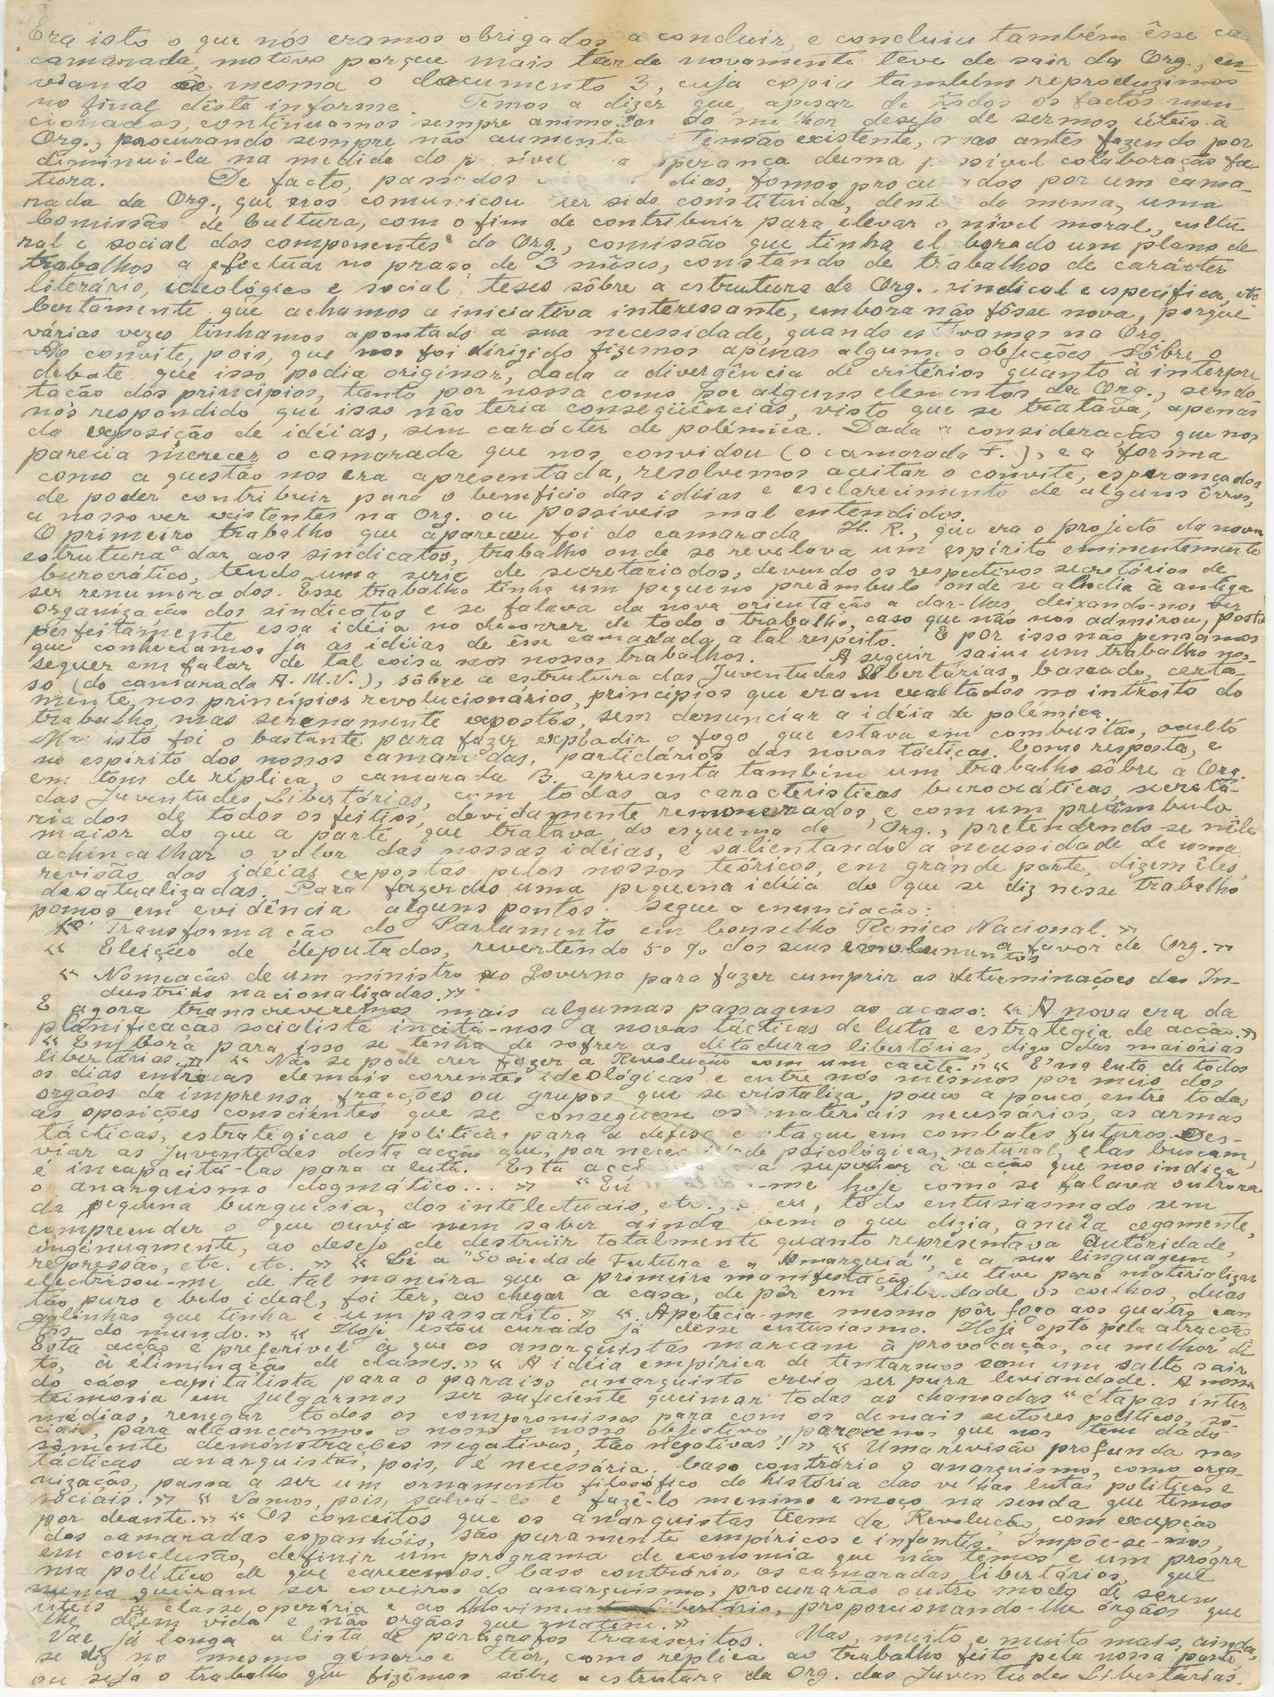 Era isto o que nós eramos obrigados a concluir, e concluiu também êsse ca-
camarada, motivo porque mais tarde novamente teve de sair da Org., en
viando à mesma o documento 3, cuja copia também reproduzimos
no final dêste informe Temos a dizer que, apesar de todos os factos men
cionados, continuamos sempre animados do melhor desejo de sermos úteis à
Org., procurando sempre não aumenta tensão existente, mas antes fazendo por
diminui-la na medida do p sivel a sperança duma p ssivel colaboração fu-
tura. De facto, passados dias, fomos procu dos por um cama-
rada da Org., que nos comunicou ter sido constituida, dent da mesma, uma
Comissão de Cultura, com o fim de contribuir para elevar o nivel moral, cultu
ral e social dos componentes da Org., comissão que tinha el borado um plano de
trabalhos a efectuar no praso de 3 mêses, constando de trabalhos de carácter
literário, ideológico e social, teses sôbre a estrutura da Org. sindical e especifica, etc
Certamente que achamos a iniciativa interessante, embora não fôsse nova, porque
várias vezes tinhamos apontado a sua necessidade, quando es vamos na Org.
Ao convite, pois, que nos foi dirigido fizemos apenas algumas objecções sôbre o
debate que isso podia originar, dada a divergência de critérios quanto à interpre
tação dos princípios, tanto por nossa como por alguns elementos da Org., sendo
nos respondido que isso não teria conseqüências, visto que se tratava, apenas
da exposição de idéias, sem carácter de polémica. Dada a consideração que nos
parecia merecer o camarada que nos convidou (o camarada F.), e a forma
como a questão nos era apresentada, resolvemos aceitar o convite, esperançados
de poder contribuir para o beneficio das idéias e esclarecimento de alguns êrros,
a nosso ver existentes na Org. ou possíveis mal entendidos.
O primeiro trabalho que apareceu foi do camarada H. R., que era o projecto da nova
estrutura a dar aos sindicatos, trabalho onde se revelava um espírito eminentemente
burocrático, tendo uma serie de secretariados, devendo os respetivos secretários de
ser renumerados. Esse trabalho tinha um pequeno preâmbulo onde se aludia à antiga
organização dos sindicatos e se falava da nova orientação a dar-lhes, deixando-nos ver
perfeitamente essa idéia no decorrer de todo o trabalho, caso que não nos admirou, posto
que conheciamos já as idéias de êsse camarada a tal respeito. E por isso não pensámos
sequer em falar de tal coisa nos nossos trabalhos. A seguir saiu um trabalho nos-
so (do camarada A. M. V.), sôbre a estrutura das Juventudes Libertárias, baseado, certa-
mente, nos princípios revolucionários, princípios que eram exaltados no introito do
trabalho, mas serenamente expostos, sem denunciar a idéia de polémica.
Mas isto foi o bastante para fazer explodir o fogo que estava em combustão, oculto
no espirito dos nossos camaradas, particiários das novas tácticas. Como resposta, e
em tom de réplica, o camarada B. apresenta também um trabalho sôbre a Org.
das Juventudes Libertárias, com todas as caracteristicas burocráticas, secretá-
riados de todos os feitios, devidamente remunerados e com um preâmbulo
maior do que a parte que tratava do esquema da Org., pretendendo-se nêle
achincalhar o valor das nossas idéias, e salientando a necessidade de uma
revisão das idéias expostas pelos nossos teóricos, em grande parte, dizem êles,
desatualizadas. Para fazerdes uma pequena idéia do que se diz nesse trabalho
pomos em evidência alguns pontos. Segue a enunciação:
Transformação do Parlamento em Conselho Tecnico Nacional.»
« Eleição de deputados, revertendo 50 % dos seus emolumentos a favor de Org.»
« Nomeação de um ministro ao Governo para fazer cumprir as determinações das In-
dustrias nacionalizadas.»
E agora transcreveremos mais algumas passagens ao acaso: « A nova era da
planificacão socialista incita-nos a novas tácticas de luta e estratégia de acção.»
« Embora para isso se tenha de sofrer as ditaduras libertárias, digo das maiorias
libertárias.» « Não se pode crer fazer a Revolução com um cacête.» « E' na luta de todos
os dias entre as demais correntes ideológicas e entre nós mesmos por meio dos
orgãos da imprensa, fracções ou grupos que se cristaliza, pouco a pouco, entre todas
as oposições conscientes que se conseguem os materiais necessários, as armas
tácticas, estratégicas e politicas para a defesa e ataque em combates futuros. Des-
viar as Juventudes desta acção que, por nece de psicológica, natural, elas buscam,
é incapacitá-las para a luta. Esta acc a superior à acção que nos indica
o anarquismo dogmático... » « Eu -me hoje como se falava outrora
da pequena burguesia, dos intelectuais, etc., e eu, todo entusiasmado sem
compreender o que ouvia nem saber ainda bem o que dizia, anuía cegamente,
ingénuamente, ao desejo de destruir totalmente quanto representava Autoridade,
repressão, etc. etc. » « Li a "Sociedade Futura e a Anarquia", e a sua linguagem
electrisou-me de tal maneira que a primeira manifestação que tive para materializar
tão puro e belo ideal, foi ter, ao chegar a casa, de pôr em liberdade os coelhos, duas
galinhas que tinha e um passarito.» « Apetecia-me mesmo pôr fogo aos quatro can
tos do mundo.» « Hoje estou curado já desse entusiasmo. Hoje opto pela atracção
Esta acção é preferivel à que os anarquistas marcam à provocação, ou melhor di
to, à eliminação de classes.» « A idéia empírica de tentarmos com um salto sair
do cáos capitalista para o paraiso anarquista creio ser pura leviandade. A nossa
teimosia em julgarmos ser suficiente queimar todas as chamadas "étapas inter
médias, renegar todos os compromissos para com os demais sectores politicos, so-
ciais, para alcançarmos o nosso o nosso objectivo, parece-nos que nos tem dado
sòmente demonstrações negativas, tão negativas!» « Uma revisão profunda nas
tácticas anarquistas, pois, é necessária. Caso contrário o anarquismo, como orga-
nização, passa a ser um ornamento filosófico da história das velhas lutas politicas e
sociais.» « Vamos, pois, salvá-lo e fazê-lo menino e moço na senda que temos
por deante.» « Os conceitos que os anarquistas têem da Revolução, com excepção
dos camaradas espanhóis, são puramente empíricos e infantis. Impõe-se-nos,
em conclusão, definir um programa de economia que não temos e um progra
ma politico de que carecemos. Caso contrário, os camaradas libertários, que
nunca queiram ser coveiros do anarquismo, procurarão outro modo de serem
úteis à classe operária e ao Movimento Libertário, proporcionando-lhe órgãos que
lhe dêem vida e não orgãos que matem.»
Vae já longa a lista de parágrafos transcritos. Mas, muito e muito mais, ainda,
se diz no mesmo género e teor, como réplica ao trabalho feito pela nossa parte
ou seja o trabalho que fizemos sôbre a estrutura da Org. das Juventudes Libertárias.